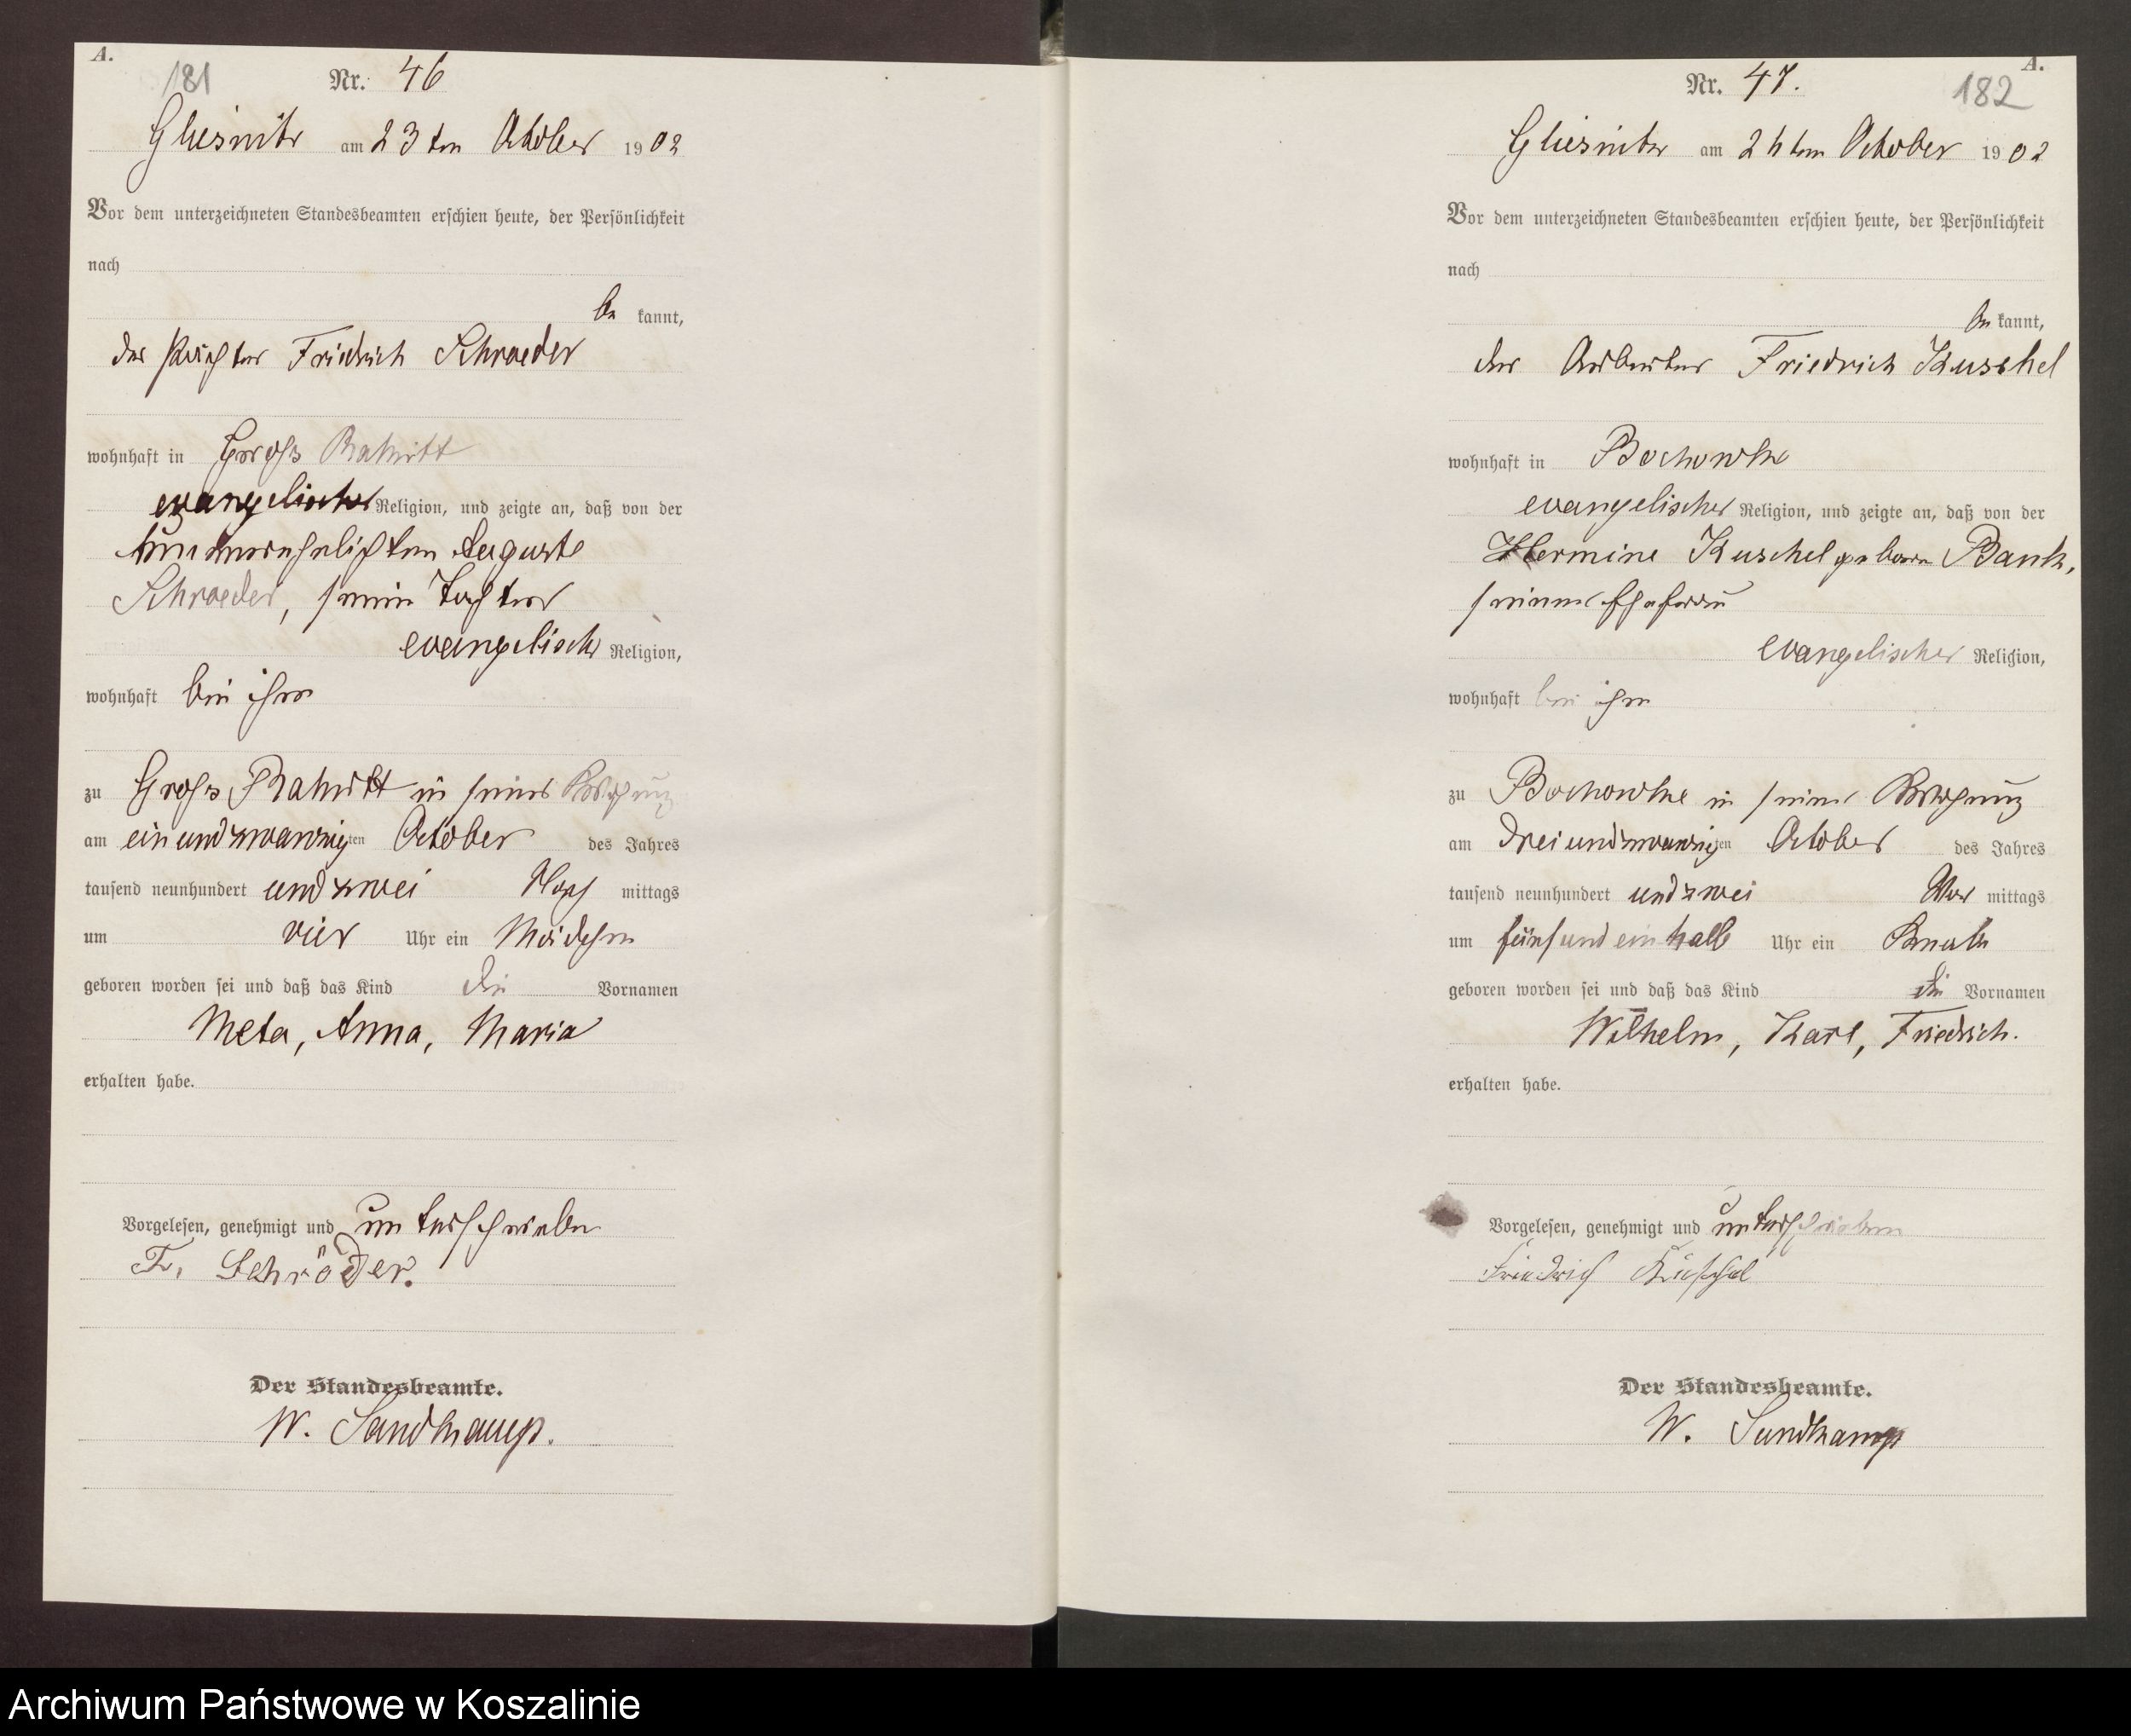 A.
181
Nr. 46
Gliesnitz am 23ten October 1902
Vor dem unterzeichneten Standesbeamten erschien heute, der Persönlichkeit
nach
be kannt,
der Pächter Friedrich Schroeder
wohnhaft in Gross Rakitt
evangelischer Religion, und zeigte an, daß von der
unverehelichten Auguste
Schroeder, seine Tochter
evangelisch Religion,
wohnhaft bei ihm
zu Gross Rakitt in seiner Wohnung
am ein und zwanzigten October des Jahres
tausend neunhundert und zwei Nach mittags
um vier Uhr ein Mädchen
geboren worden sei und daß das Kind die Vornamen
Meta, Anna, Maria
erhalten habe.
Vorgelesen, genehmigt und unterschrieben
F. Schröder.
Der Standesbeamte.
W. Sandkamp.
A.
182
Nr. 47.
Gliesnitz am ten October 1902
Vor dem unterzeichneten Standesbeamten erschien heute, der Persönlichkeit
nach
be kannt,
der Arbeiter Friedrich Kuschel
wohnhaft in Bochowke
evangelischer Religion, und zeigte an, daß von der
Hermine Kuschel geborene Bank,
seiner Ehefrau
evangelischer Religion,
wohnhaft bei ihm
zu Bochowke in seiner Wohnung
am drei und zwanzigten October des Jahres
tausend neunhundert und zwei Vor mittags
um fünf und ein halb Uhr ein Knabe
geboren worden sei und daß das Kind die Vornamen
Wilhelm, Karl, Friedrich.
erhalten habe.
Vorgelesen, genehmigt und unterschrieben
Friedrich Kuschel
Der Standesbeamte.
W. Sandkamp
Archiwum Państwowe w Koszalinie